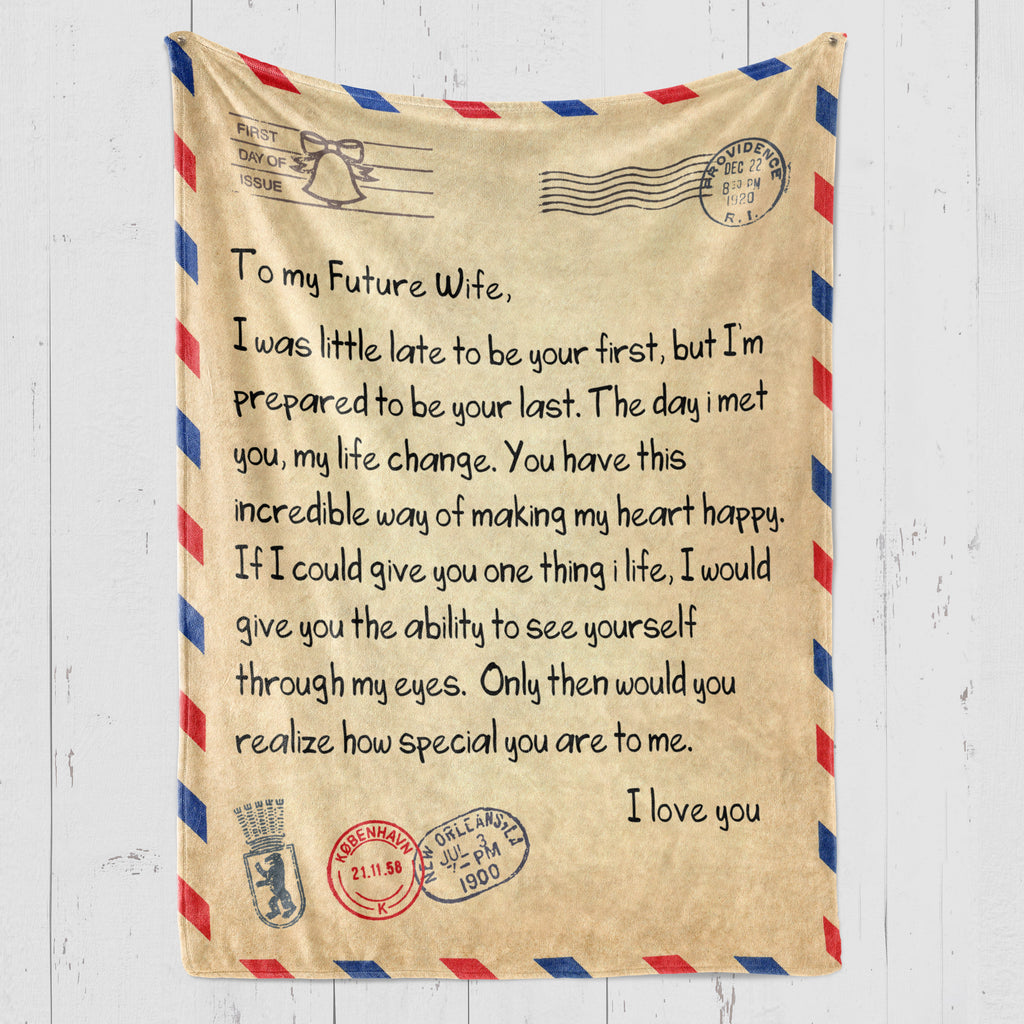 FIRST
DAY OF
ISSUE
PROVIDENCE
DEC 22
8 30 PM
1920
R. I.
To my Future Wife,
I was little late to be your first, but I'm
prepared to be your last. The day i met
you, my life change. You have this
incredible way of making my heart happy.
If I could give you one thing i life, I would
give you the ability to see yourself
through my eyes. Only then would you
realize how special you are to me.
I love you
KØBENHAVN
21.11.58
K
NEW ORLEANS, LA
JUL 3
7 - PM
1900